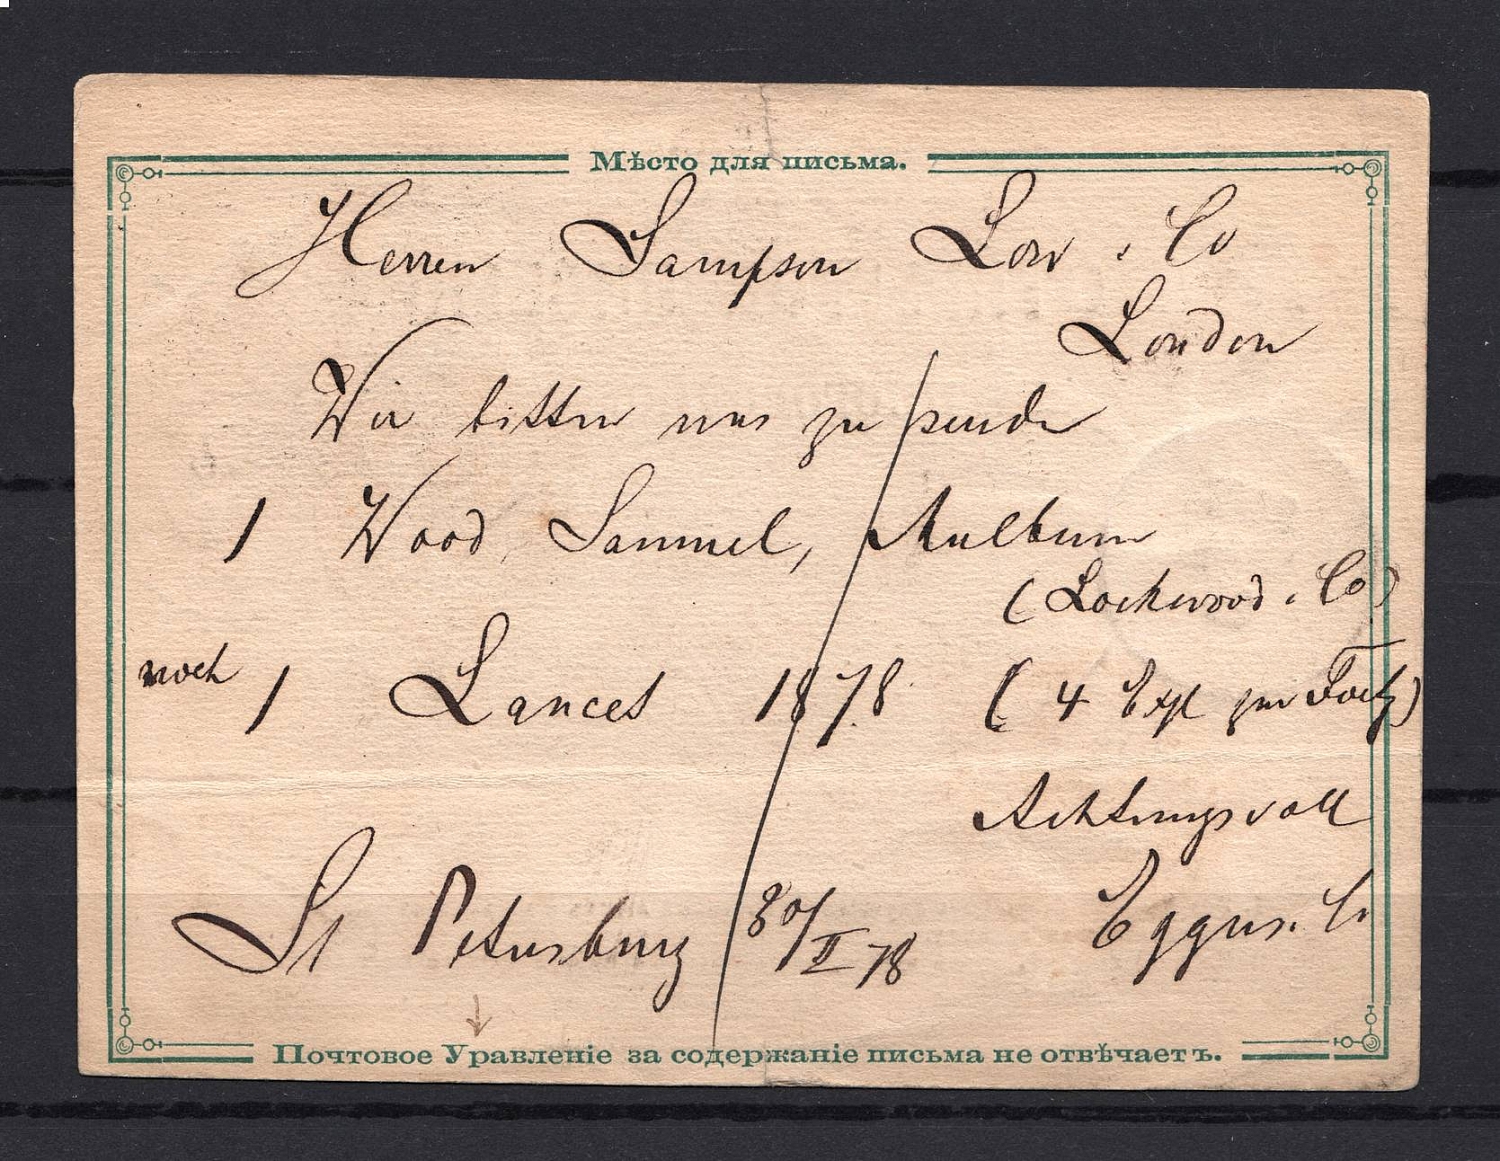 Мѣсто для письма.
Herren Sampson Low & Co
London
Wir bitten uns zu senden
1 Wood, Samuel,
(Lockwood & Co)
noch 1 Lancet 1878 (4 Expl zur Forts)
Achtungsvoll
St Petersburg /II 78 Eggers & Co
Почтовое Управленіе за содержаніе письма не отвѣчаетъ.